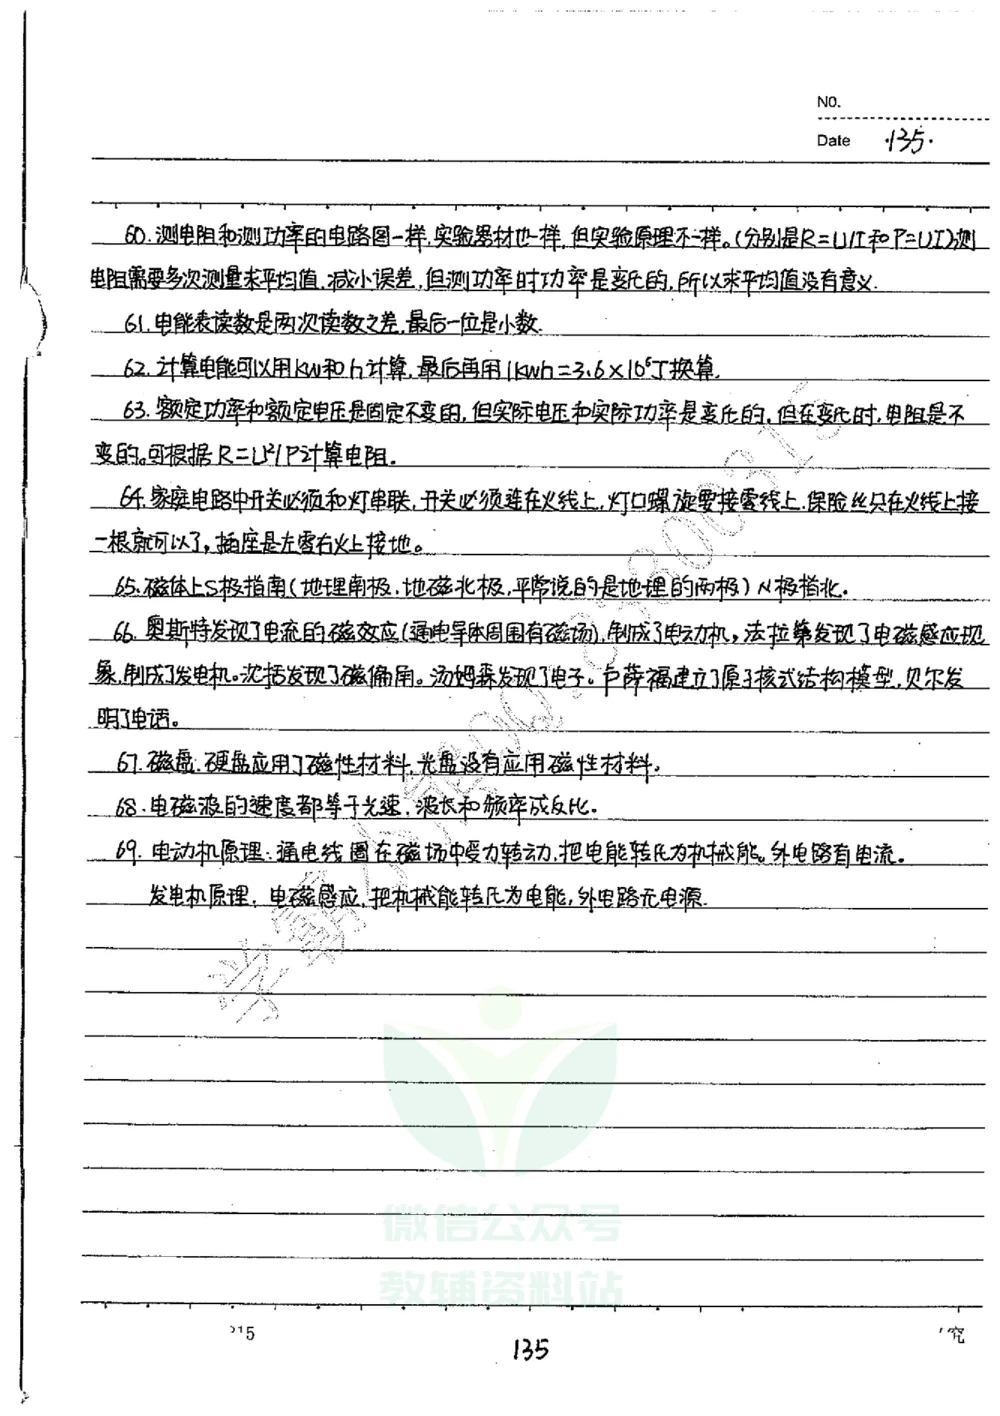 NO.
Date ·135·
60.测电阻和测功率的电路图一样,实验器材也一样,但实验原理不一样。(分别是R=U/I和P=UI)测
电阻需要多次测量求平均值,减小误差,但测功率时功率是变化的,所以求平均值没有意义.
61.电能表读数是两次读数之差,最后一位是小数.
62.计算电能可以用kw和h计算,最后再用1kwh=3.6×10⁶J换算.
63.额定功率和额定电压是固定不变的,但实际电压和实际功率是变化的,但在变化时,电阻是不
变的。可根据R=U²/P计算电阻.
64.家庭电路中开关必须和灯串联,开关必须连在火线上,灯口螺旋要接零线上.保险丝只在火线上接
一根就可以了,插座是左零右火上接地。
65.磁体上S极指南(地理南极,地磁北极,平常说的是地理的两极)N极指北。
66.奥斯特发现了电流的磁效应(通电导体周围有磁场),制成了电动机,法拉第发现了电磁感应现
象,制成了发电机。沈括发现了磁偏角。汤姆森发现了电子。卢萨福建立了原子核式结构模型,贝尔发
明了电话。
67.磁盘.硬盘应用了磁性材料,光盘没有应用磁性材料。
68.电磁波的速度都等于光速,波长和频率成反比。
69.电动机原理:通电线圈在磁场中受力转动,把电能转化为机械能。外电路有电流。
发电机原理:电磁感应,把机械能转化为电能,外电路无电源.
学霸
微信公众号
教辅资料站
215
135
究